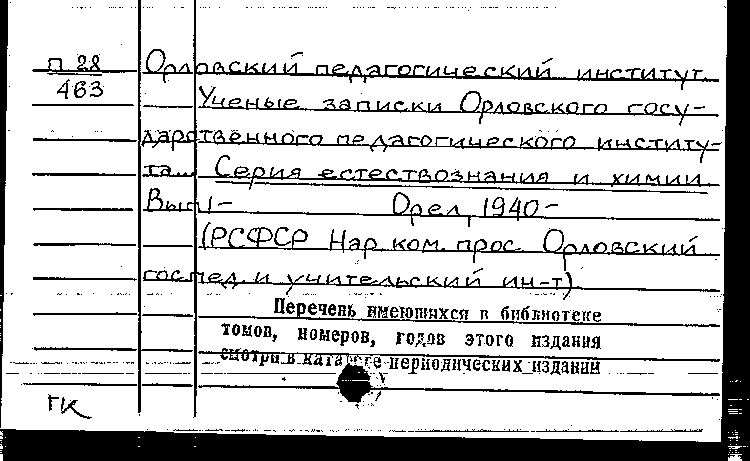 П 28
463
Орловский педагогический институт.
Ученые записки Орловского госу-
дарственного педагогического институ-
та... Серия естествознания и химии.
Вып 1- Орел, 1940-
(РСФСР Нар.ком.прос. Орловский
гос.пед. и учительский ин-т)
Перечень имеющихся в библиотеке
томов, номеров, годов этого издания
смотри в каталоге периодических изданий
ГК